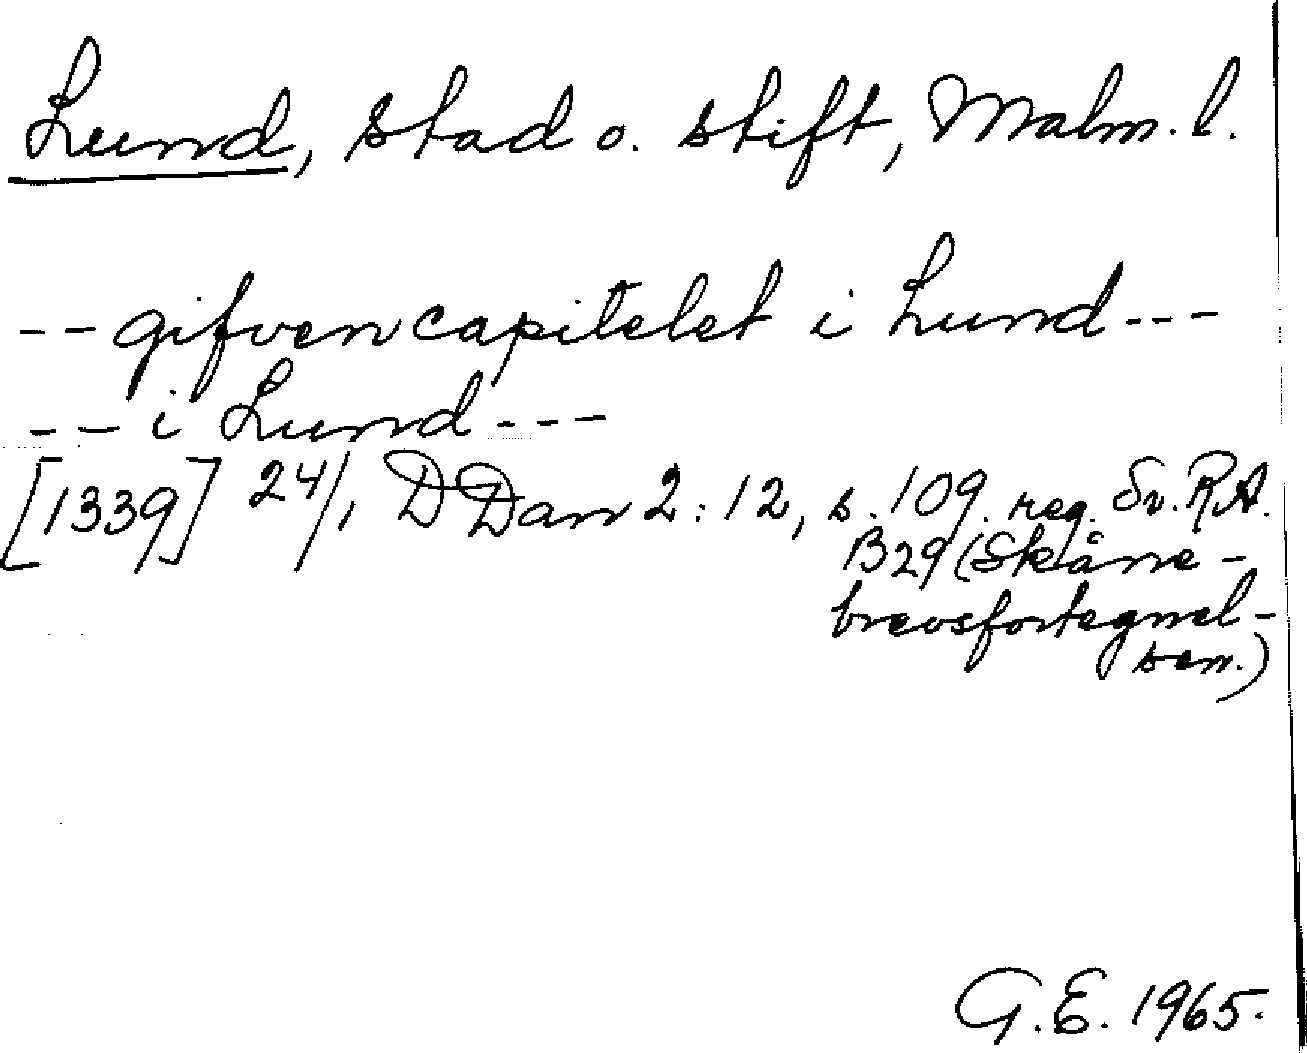 Lund, stad o. stift, Malm. l.
-- gifven capitelet i Lund ---
-- i Lund ---
[1339] 24/1 DDan 2:12, s. 109. reg. Sv. R.A.
B29 (Skåne-
brevsfortegnel-
sen.)
G.E. 1965.